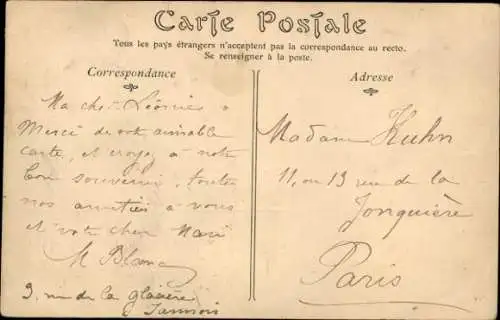 Carte Postale
Tous les pays étrangers n'acceptent pas la correspondance au recto.
Se renseigner à la poste.
Correspondance
Ma chère Léonie
Merci de votre aimable
carte, et croyez à notre
bon souvenir, toutes
nos amitiés à vous
et votre cher Mari
M Blanc
3, rue de la glacière
Adresse
Madame Kuhn
11, ou 13 rue de la
Jonquière
Paris